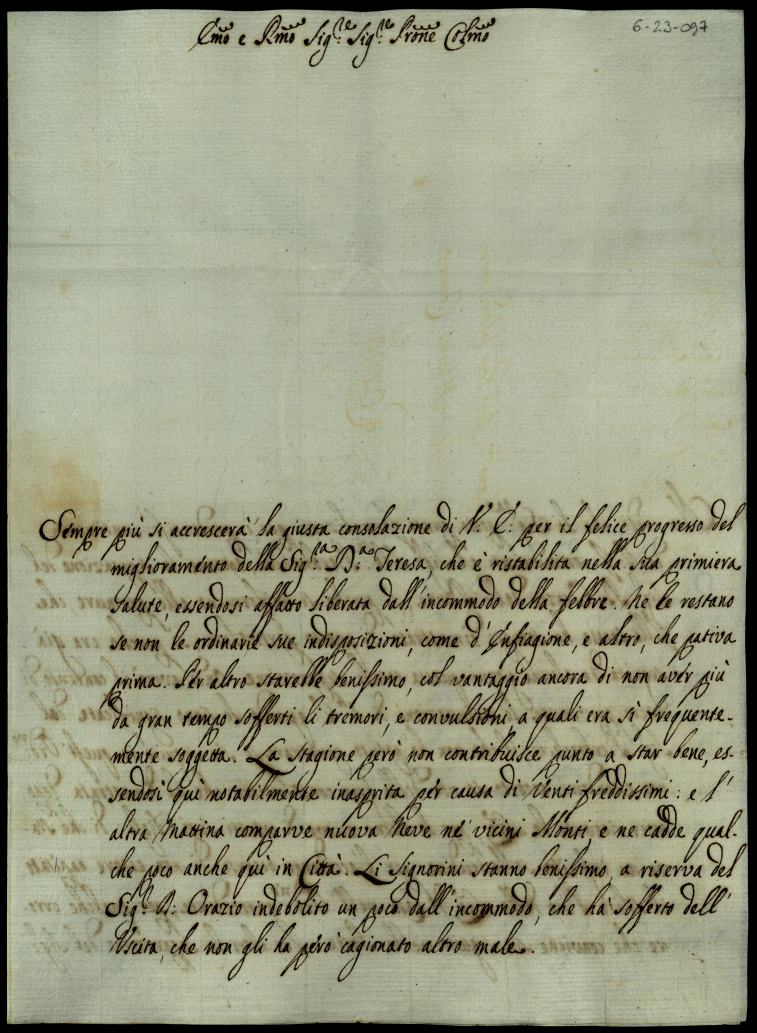 6-23-097
Emo e Rmo Sig.re Sig.re Prone Colmo
Sempre più si accrescerà la giusta consolazione di V. E: per il felice progresso del
miglioramento della Sig.ra D.a Teresa, che è ristabilita nella sua primiera
salute, essendosi affatto liberata dall'incommodo della febbre. Ne le restano
se non le ordinarie sue indisposizioni, come d'Enfiagione, e altro, che pativa
prima. Per altro starebbe benissimo, col vantaggio ancora di non aver più
da gran tempo sofferti li tremori, e convulsioni a quali era sì frequente-
mente soggetta. La stagione però non contribuisce punto a star bene, es-
sendosi quì notabilmente inasprita per causa di Venti freddissimi: e l'
altra Mattina comparve nuova Neve ne' vicini Monti, e ne cadde qual-
che poco anche quì in Città. Li Signorini stanno benissimo, a riserva del
Sig.r D: Orazio indebolito un poco dall'incommodo, che hà sofferto dell'
Uscita, che non gli ha però cagionato altro male.